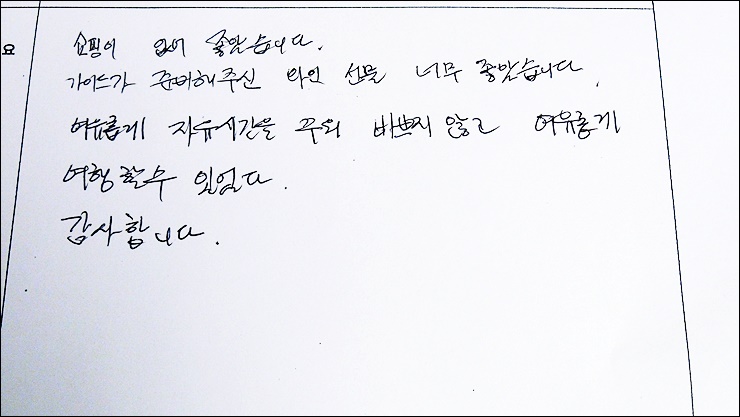 쇼핑이 없어 좋았습니다.
가이드가 준비해주신 와인 선물 너무 좋았습니다.
여유롭게 자유시간을 주워 바쁘지 않고 여유롭게
여행할수 있었다.
감사합니다.
요